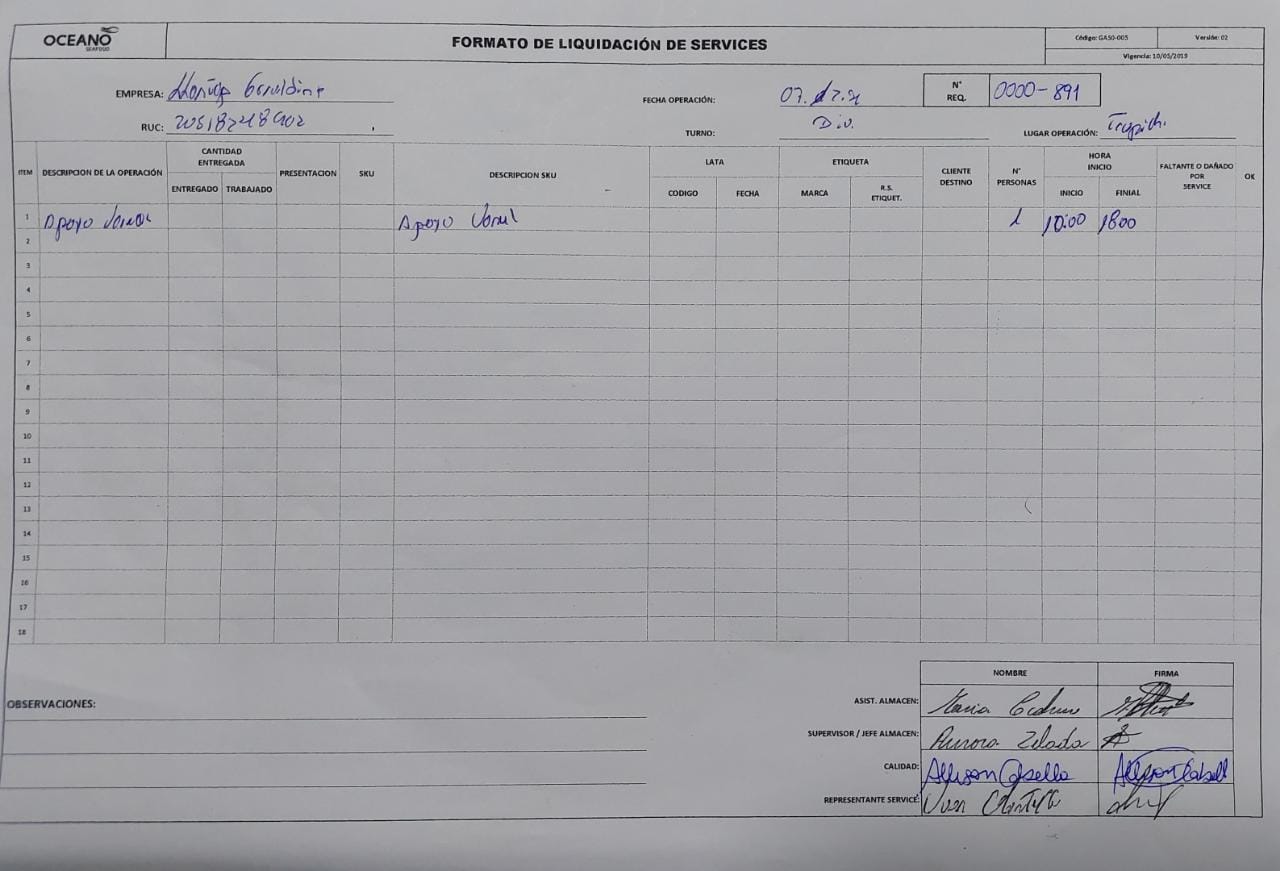 OCEANO
SEAFOOD
FORMATO DE LIQUIDACIÓN DE SERVICES
Código: GASO-005
Versión: 02
Vigencia: 10/05/2019
EMPRESA: Geraldine
FECHA OPERACIÓN: 07.
N° REQ. 0000-891
RUC:
TURNO: Div.
LUGAR OPERACIÓN:
ITEM
DESCRIPCION DE LA OPERACIÓN
CANTIDAD ENTREGADA
ENTREGADO
TRABAJADO
PRESENTACION
SKU
DESCRIPCION SKU
LATA
CODIGO
FECHA
ETIQUETA
MARCA
R.S. ETIQUET.
CLIENTE DESTINO
N° PERSONAS
HORA INICIO
INICIO
FINIAL
FALTANTE O DAÑADO POR SERVICE
OK
1 Apoyo Apoyo 1 10:00 1800
2
3
4
5
6
7
8
9
10
11
12
13
14
15
16
17
18
OBSERVACIONES:
NOMBRE
FIRMA
ASIST. ALMACEN: Maria
SUPERVISOR / JEFE ALMACEN: Aurora Zelada
CALIDAD: Allyson
REPRESENTANTE SERVICE: Juan